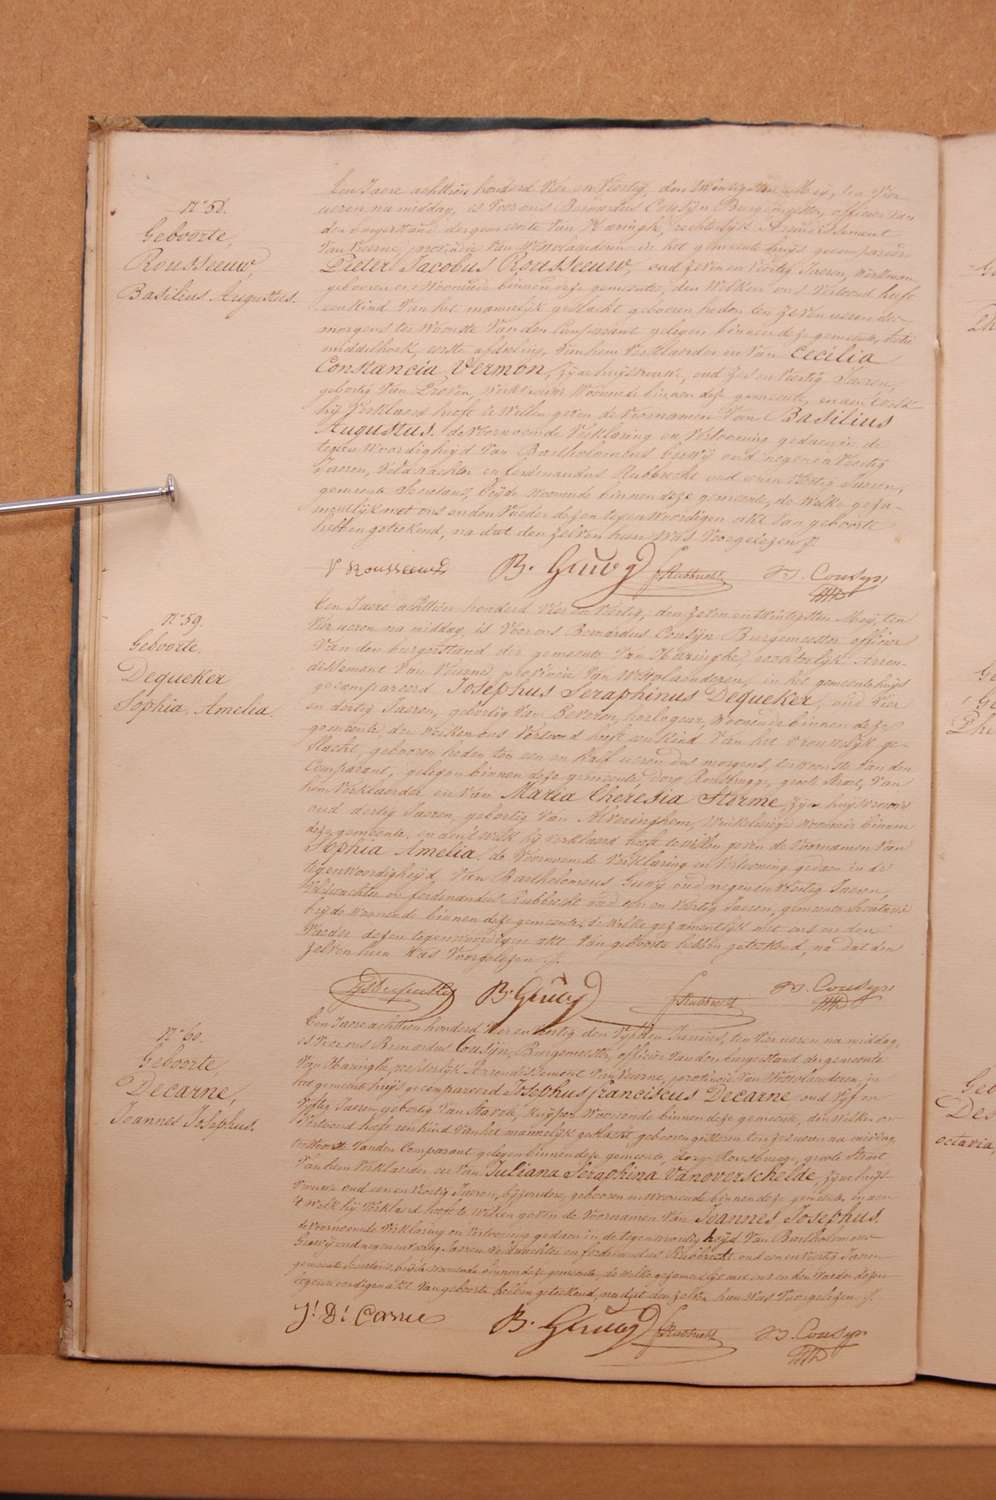 N° 58.
Geboorte,
Rousseeuw,
Basilius Augustus.
Een Jaere achttien honderd vier en veertig, den twintigsten Mey, ten vier
ueren na middag, is voor ons Bernardus Cousyn Burgemeester, officier van
den burgerstand der gemeente van Haringhe, rechterlijk Arrondissement
van Veurne, provincie van Westvlaenderen in het gemeente huijs gecompareerd
Pieter Jacobus Rousseeuw, oud zeven en veertig Jaeren, werkman
geboren en woonende binnen deze gemeente, den welken ons vertoond heeft
een kind van het mannelijk geslacht geboren heden ten zeven ueren des
morgens ter woonste van den Comparant gelegen binnen deze gemeente,
middelhoek, eerste afdeeling, van hem verklaerder en van Cecilia
Constancia Vermon, zyne huijsvrouw, oud zes en veertig Jaeren,
geboortig van Proven, woonende binnen deze gemeente, en aen welk
hij verklaerd heeft te willen geven de voornamen van Basilius
Augustus. de voornoemde verklaring en vertooning gedaen in de
tegenwoordigheijd van Bartholomeus Gruwy oud negen en veertig
Jaeren, veldwachter en ferdinandus Rubbrecht oud een en veertig Jaeren,
gemeente Secretaris, beijde woonende binnen deze gemeente, de welke geza-
mentlijk met ons en den Vader dezen tegenwoordigen akt van geboorte
hebben geteekend, na dat den zelven hun was voorgelezen ./.
P Rousseeuw B. Gruwy f Rubbrecht B. Cousyn
N° 59.
Geboorte.
Dequeker
Sophia Amelia.
Een Jaere achttien honderd vier en veertig, den zeven en twintigsten Meij, ten
vier ueren na middag, is voor ons Bernardus Cousyn Burgemeester officier
van den burgerstand der gemeente van Haringhe, rechterlijk Arron-
dissement van Veurne, provincie van Westvlaenderen, in het gemeente huijs
gecompareerd Josephus Seraphinus Dequeker, oud vier
en dertig Jaeren, geboortig van Beveren, horlogeur, woonende binnen deze
gemeente, den welken ons vertoond heeft een kind van het vrouwelijk ge-
slacht, geboren heden ten een en half ueren des morgens, ter woonste van den
Comparant, gelegen binnen deze gemeente, dorp Rousbrugge, groote straet, van
hem verklaerder en van Maria Theresia Storme, zyne huijsvrouw
oud dertig Jaeren, geboortig van Alveringhem, winkelierige woonende binnen
deze gemeente, en aen welk hij verklaerd heeft te willen geven de voornamen van
Sophia Amelia. de voornoemde verklaring en vertooning gedaen in de
tegenwoordigheijd van Bartholomeus Gruwy oud negen en veertig Jaeren,
veldwachter en ferdinandus Rubbrecht oud een en veertig Jaeren, gemeente secretaris
beijde woonende binnen deze gemeente, de welke gezamentlijk met ons en den
Vader dezen tegenwoordigen akt van geboorte hebben geteekend, na dat den
zelven hun was voorgelezen ./.
JS Dequeker B. Gruwy f Rubbrecht B. Cousyn
N° 60.
Geboorte,
Decarne,
Joannes Josephus.
Een Jaere achttien honderd vier en veertig den vyfden Junius, ten vier ueren na middag,
is voor ons Bernardus Cousyn, Burgemeester, officier van den burgerstand der gemeente
van Haringhe, rechterlijk Arrondissement van Veurne, provincie van Westvlaenderen, in
het gemeente huijs gecompareerd Josephus franciscus Decarne oud vyf en
vyftig Jaeren, geboortig van Stavele, kuyper woonende binnen deze gemeente, den welken ons
vertoond heeft een kind van het mannelijk geslacht, geboren gisteren ten zes ueren na middag,
ter woonste van den Comparant gelegen binnen deze gemeente, dorp Rousbrugge, groote straet
van hem verklaerder en van Juliana Seraphina Vanoverschelde, zyne huijs-
vrouwe oud een en veertig Jaeren, bijzondere, geboren en woonende binnen deze gemeente, en aen
't welk hij verklaerd heeft te willen geven de voornamen van Joannes Josephus.
de voornoemde verklaring en vertooning gedaen in de tegenwoordigheijd van Bartholomeus
Gruwy oud negen en veertig Jaeren veldwachter en ferdinandus Rubbrecht oud een en veertig Jaeren
gemeente secretaris, beijde woonende binnen deze gemeente, de welke gezamentlijk met ons en den Vader dezen
tegenwoordigen akt van geboorte hebben geteekend, na dat den zelven hun was voorgelezen ./.
J: D: Carne B. Gruwy f Rubbrecht B. Cousyn